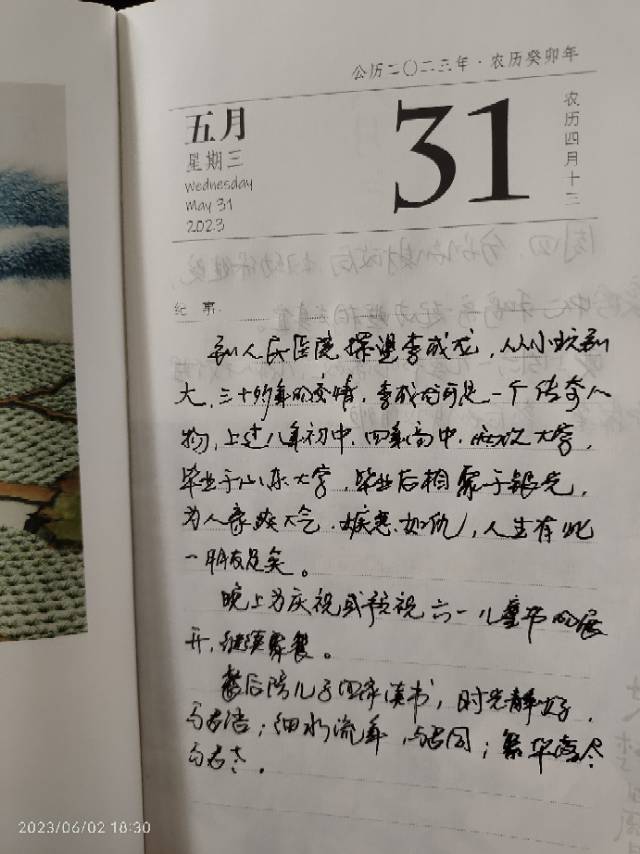 公历二〇二三年·农历癸卯年
五月
31
农历四月十三
星期三
Wednesday
May 31
2023
纪 事:
到人民医院探望李成龙，从小玩到
大，三十多年的交情，李成龙可是一个传奇人
物，上过八年初中，四年高中，大学，
毕业于山东大学，毕业后相聚于银光，
为人豪爽大气，嫉恶如仇，人生有此
一朋友足矣。
晚上为庆祝或预祝六一儿童节的展
开，继续聚餐。
餐后陪儿子回家读书，时光静好，
与君语；细水流年，与君同；繁华落尽
与君老。
2023/06/02 18:30